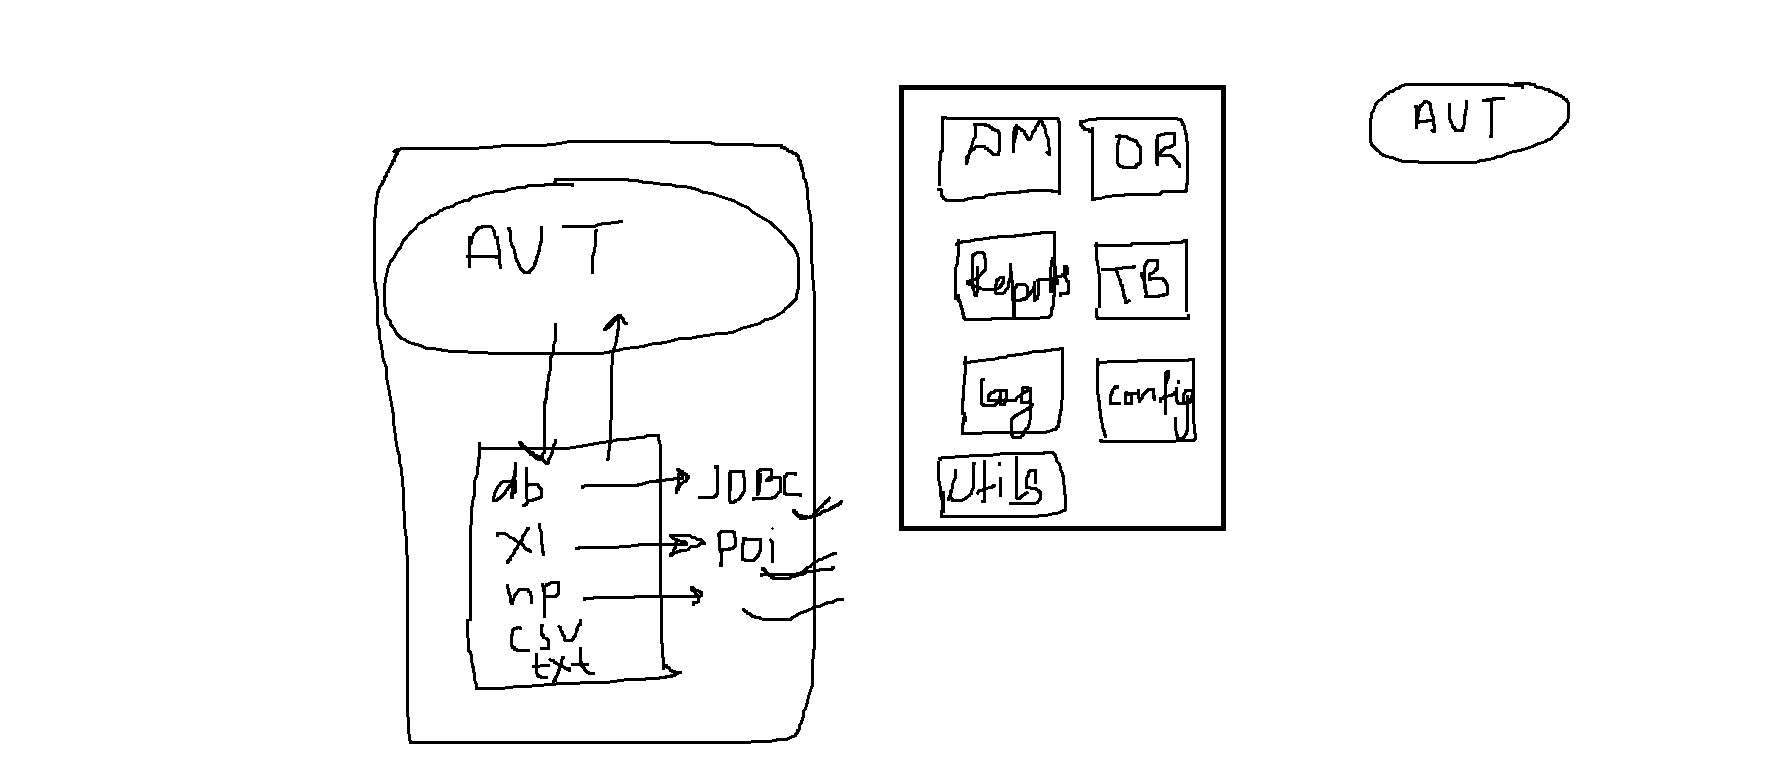 AUT
db
JDBC
xl
POi
np
csv
txt
DM
OR
Reports
TB
Log
config
Utils
AUT